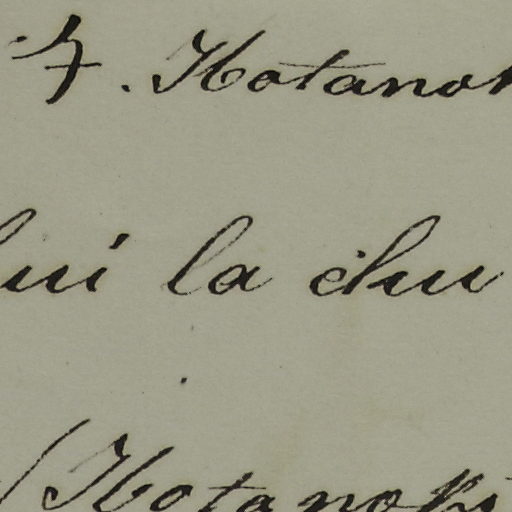 7. Hotanok
hui la chu
(Hotanoks